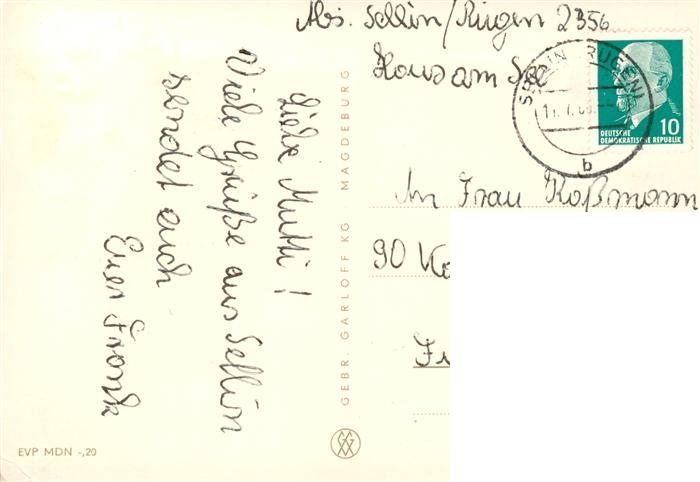 Abs. Sellin/Rügen 2356
Haus am See
SELLIN (RÜGEN)
b
10
DEUTSCHE
DEMOKRATISCHE REPUBLIK
An Frau Roßmann
90
Liebe Mutti!
Viele Grüße aus Sellin
sendet euch
Euer Frank
GEBR. GARLOFF KG MAGDEBURG
EVP MDN -,20